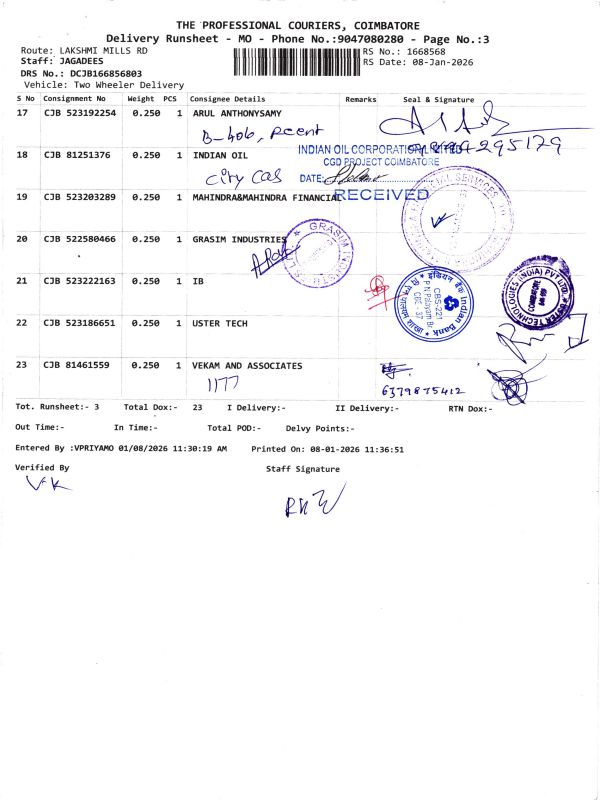 THE PROFESSIONAL COURIERS, COIMBATORE
Delivery Runsheet - MO - Phone No.:9047080280 - Page No.:3
Route: LAKSHMI MILLS RD
RS No.: 1668568
Staff: JAGADEES
RS Date: 08-Jan-2026
DRS No.: DCJB166856803
Vehicle: Two Wheeler Delivery
S No Consignment No Weight PCS Consignee Details Remarks Seal & Signature
17 CJB 523192254 0.250 1 ARUL ANTHONYSAMY
B-406,
295179
18 CJB 81251376 0.250 1 INDIAN OIL
INDIAN OIL CORPORATION LIMITED
CGD PROJECT COIMBATORE
City Gas
DATE:
RECEIVED
19 CJB 523203289 0.250 1 MAHINDRA&MAHINDRA FINANCIAL
SERVICES
20 CJB 522580466 0.250 1 GRASIM INDUSTRIES
GRASIM
21 CJB 523222163 0.250 1 IB
इंडियन बैंक Indian Bank
CBS-221
P N Palayam Br.
CBE - 37
USTER TECHNOLOGIES (INDIA) PVT. LTD.
COIMBATORE
22 CJB 523186651 0.250 1 USTER TECH
23 CJB 81461559 0.250 1 VEKAM AND ASSOCIATES
1177
6379875412
Tot. Runsheet:- 3 Total Dox:- 23 I Delivery:- II Delivery:- RTN Dox:-
Out Time:- In Time:- Total POD:- Delvy Points:-
Entered By :VPRIYAMO 01/08/2026 11:30:19 AM Printed On: 08-01-2026 11:36:51
Verified By Staff Signature
V-K